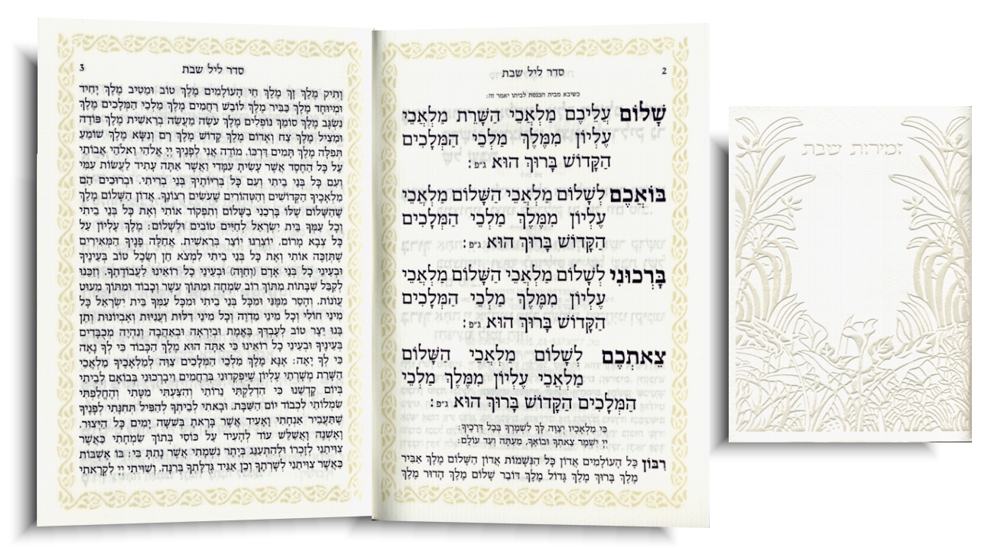 2
סדר ליל שבת
כשיבא מבית הכנסת לביתו יאמר זה:
שָׁלוֹם עֲלֵיכֶם מַלְאֲכֵי הַשָּׁרֵת מַלְאֲכֵי
עֶלְיוֹן מִמֶּלֶךְ מַלְכֵי הַמְּלָכִים
הַקָּדוֹשׁ בָּרוּךְ הוּא ג״פ:
בּוֹאֲכֶם לְשָׁלוֹם מַלְאֲכֵי הַשָּׁלוֹם מַלְאֲכֵי
עֶלְיוֹן מִמֶּלֶךְ מַלְכֵי הַמְּלָכִים
הַקָּדוֹשׁ בָּרוּךְ הוּא ג״פ:
בָּרְכוּנִי לְשָׁלוֹם מַלְאֲכֵי הַשָּׁלוֹם מַלְאֲכֵי
עֶלְיוֹן מִמֶּלֶךְ מַלְכֵי הַמְּלָכִים
הַקָּדוֹשׁ בָּרוּךְ הוּא ג״פ:
צֵאתְכֶם לְשָׁלוֹם מַלְאֲכֵי הַשָּׁלוֹם
מַלְאֲכֵי עֶלְיוֹן מִמֶּלֶךְ מַלְכֵי
הַמְּלָכִים הַקָּדוֹשׁ בָּרוּךְ הוּא ג״פ:
כִּי מַלְאָכָיו יְצַוֶּה לָּךְ לִשְׁמָרְךָ בְּכָל דְּרָכֶיךָ:
יְיָ יִשְׁמָר צֵאתְךָ וּבוֹאֶךָ, מֵעַתָּה וְעַד עוֹלָם:
רִבּוֹן כָּל הָעוֹלָמִים אֲדוֹן כָּל הַנְּשָׁמוֹת אֲדוֹן הַשָּׁלוֹם מֶלֶךְ אַבִּיר
מֶלֶךְ בָּרוּךְ מֶלֶךְ גָּדוֹל מֶלֶךְ דּוֹבֵר שָׁלוֹם מֶלֶךְ הָדוּר מֶלֶךְ
3
סדר ליל שבת
ותיק מלך זך מלך חי העולמים מלך טוב ומטיב מלך יחיד
ומיוחד מלך כביר מלך לובש רחמים מלך מלכי המלכים מלך
נשגב מלך סומך נופלים מלך עשה מעשה בראשית מלך פודה
ומציל מלך צח ואדום מלך קדוש מלך רם ונשא מלך שומע
תפלה מלך תמים דרכו. מודה אני לפניך יי אלהי ואלהי אבותי
על כל החסד אשר עשית עמדי ואשר אתה עתיד לעשות עמי
ועם כל בני ביתי ועם כל בריותיך בני בריתי. וברוכים הם
מלאכיך הקדושים והטהורים שעושים רצונך. אדון השלום מלך
שהשלום שלו ברכני בשלום ותפקוד אותי ואת כל בני ביתי
וכל עמך בית ישראל לחיים טובים ולשלום: מלך עליון על
כל צבא מרום. יוצרנו יוצר בראשית. אחלה פניך המאירים
שתזכה אותי ואת כל בני ביתי למצא חן ושכל טוב בעיניך
ובעיני כל בני אדם (וחוה) ובעיני כל רואינו לעבודתך. וזכנו
לקבל שבתות מתוך רוב שמחה ומתוך עשר וכבוד ומתוך מעוט
עונות. והסר ממני ומכל בני ביתי ומכל עמך בית ישראל כל
מיני חולי וכל מיני מדוה וכל מיני דלות ועניות ואביונות ותן
בנו יצר טוב לעבדך באמת וביראה ובאהבה. ונהיה מכבדים
בעיניך ובעיני כל רואינו כי אתה הוא מלך הכבוד כי לך נאה
כי לך יאה: אנא מלך מלכי המלכים צוה למלאכיך מלאכי
השרת משרתי עליון שיפקדוני ברחמים ויברכוני בבואם לביתי
ביום קדשנו כי הדלקתי נרותי והצעתי מטתי והחלפתי
שמלותי לכבוד יום השבת. ובאתי לביתך להפיל תחנתי לפניך
שתעביר אנחתי ואעיד אשר בראת בששה ימים כל היצור.
ואשנה ואשלש עוד להעיד על כוסי בתוך שמחתי כאשר
צויתני לזכרו ולהתענג ביתר נשמתי אשר נתת בי: בו אשבות
כאשר צויתני לשרתך וכן אגיד גדלתך ברנה. ושויתי יי לקראתי
זמירות שבת